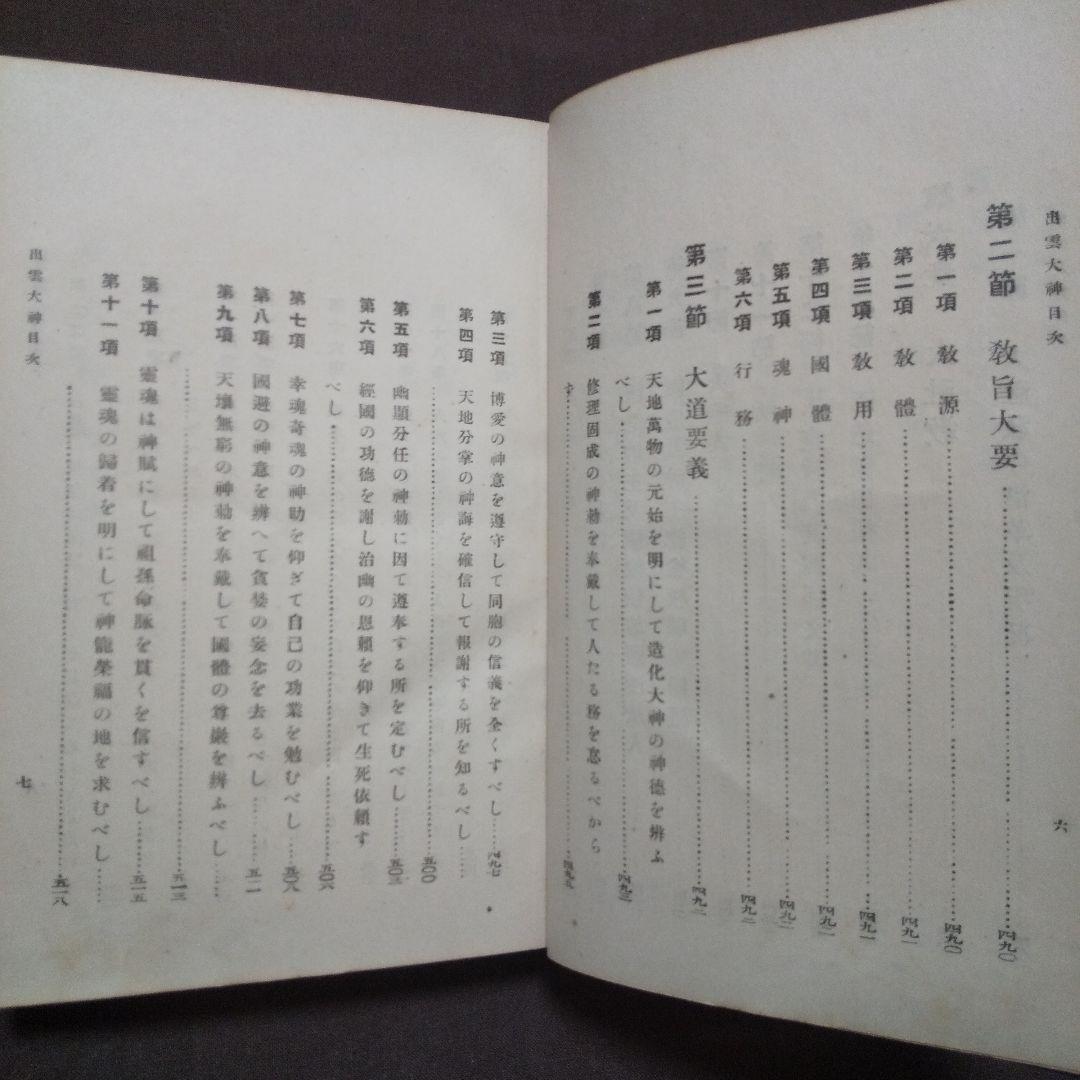 出雲大神目次
六
第二節 教旨大要……四九〇
第一項 教源……四九〇
第二項 教體……四九一
第三項 教用……四九一
第四項 國體……四九一
第五項 魂神……四九二
第六項 行務……四九二
第三節 大道要義……四九二
第一項 天地萬物の元始を明にして造化大神の神德を辨ふ
べし……四九三
第二項 修理固成の神勅を奉戴して人たる務を怠るべから
ず……
第三項 博愛の神意を遵守して同胞の信義を全くすべし……四九七
第四項 天地分掌の神誨を確信して報謝する所を知るべし……
……五〇〇
第五項 幽顯分任の神勅に因て遵奉する所を定むべし……五〇三
第六項 經國の功德を謝し治幽の恩賴を仰きて生死依賴す
べし……五〇六
第七項 幸魂奇魂の神助を仰ぎて自己の功業を勉むべし……五〇八
第八項 國避の神意を辨へて貪婪の妄念を去るべし……五一一
第九項 天壤無窮の神勅を奉戴して國體の尊嚴を辨ふべし
……五一三
第十項 靈魂は神賦にして祖孫命脈を貫くを信すべし……五一五
第十一項 靈魂の歸着を明にして神寵榮福の地を求むべし……
……五一八
出雲大神目次
七